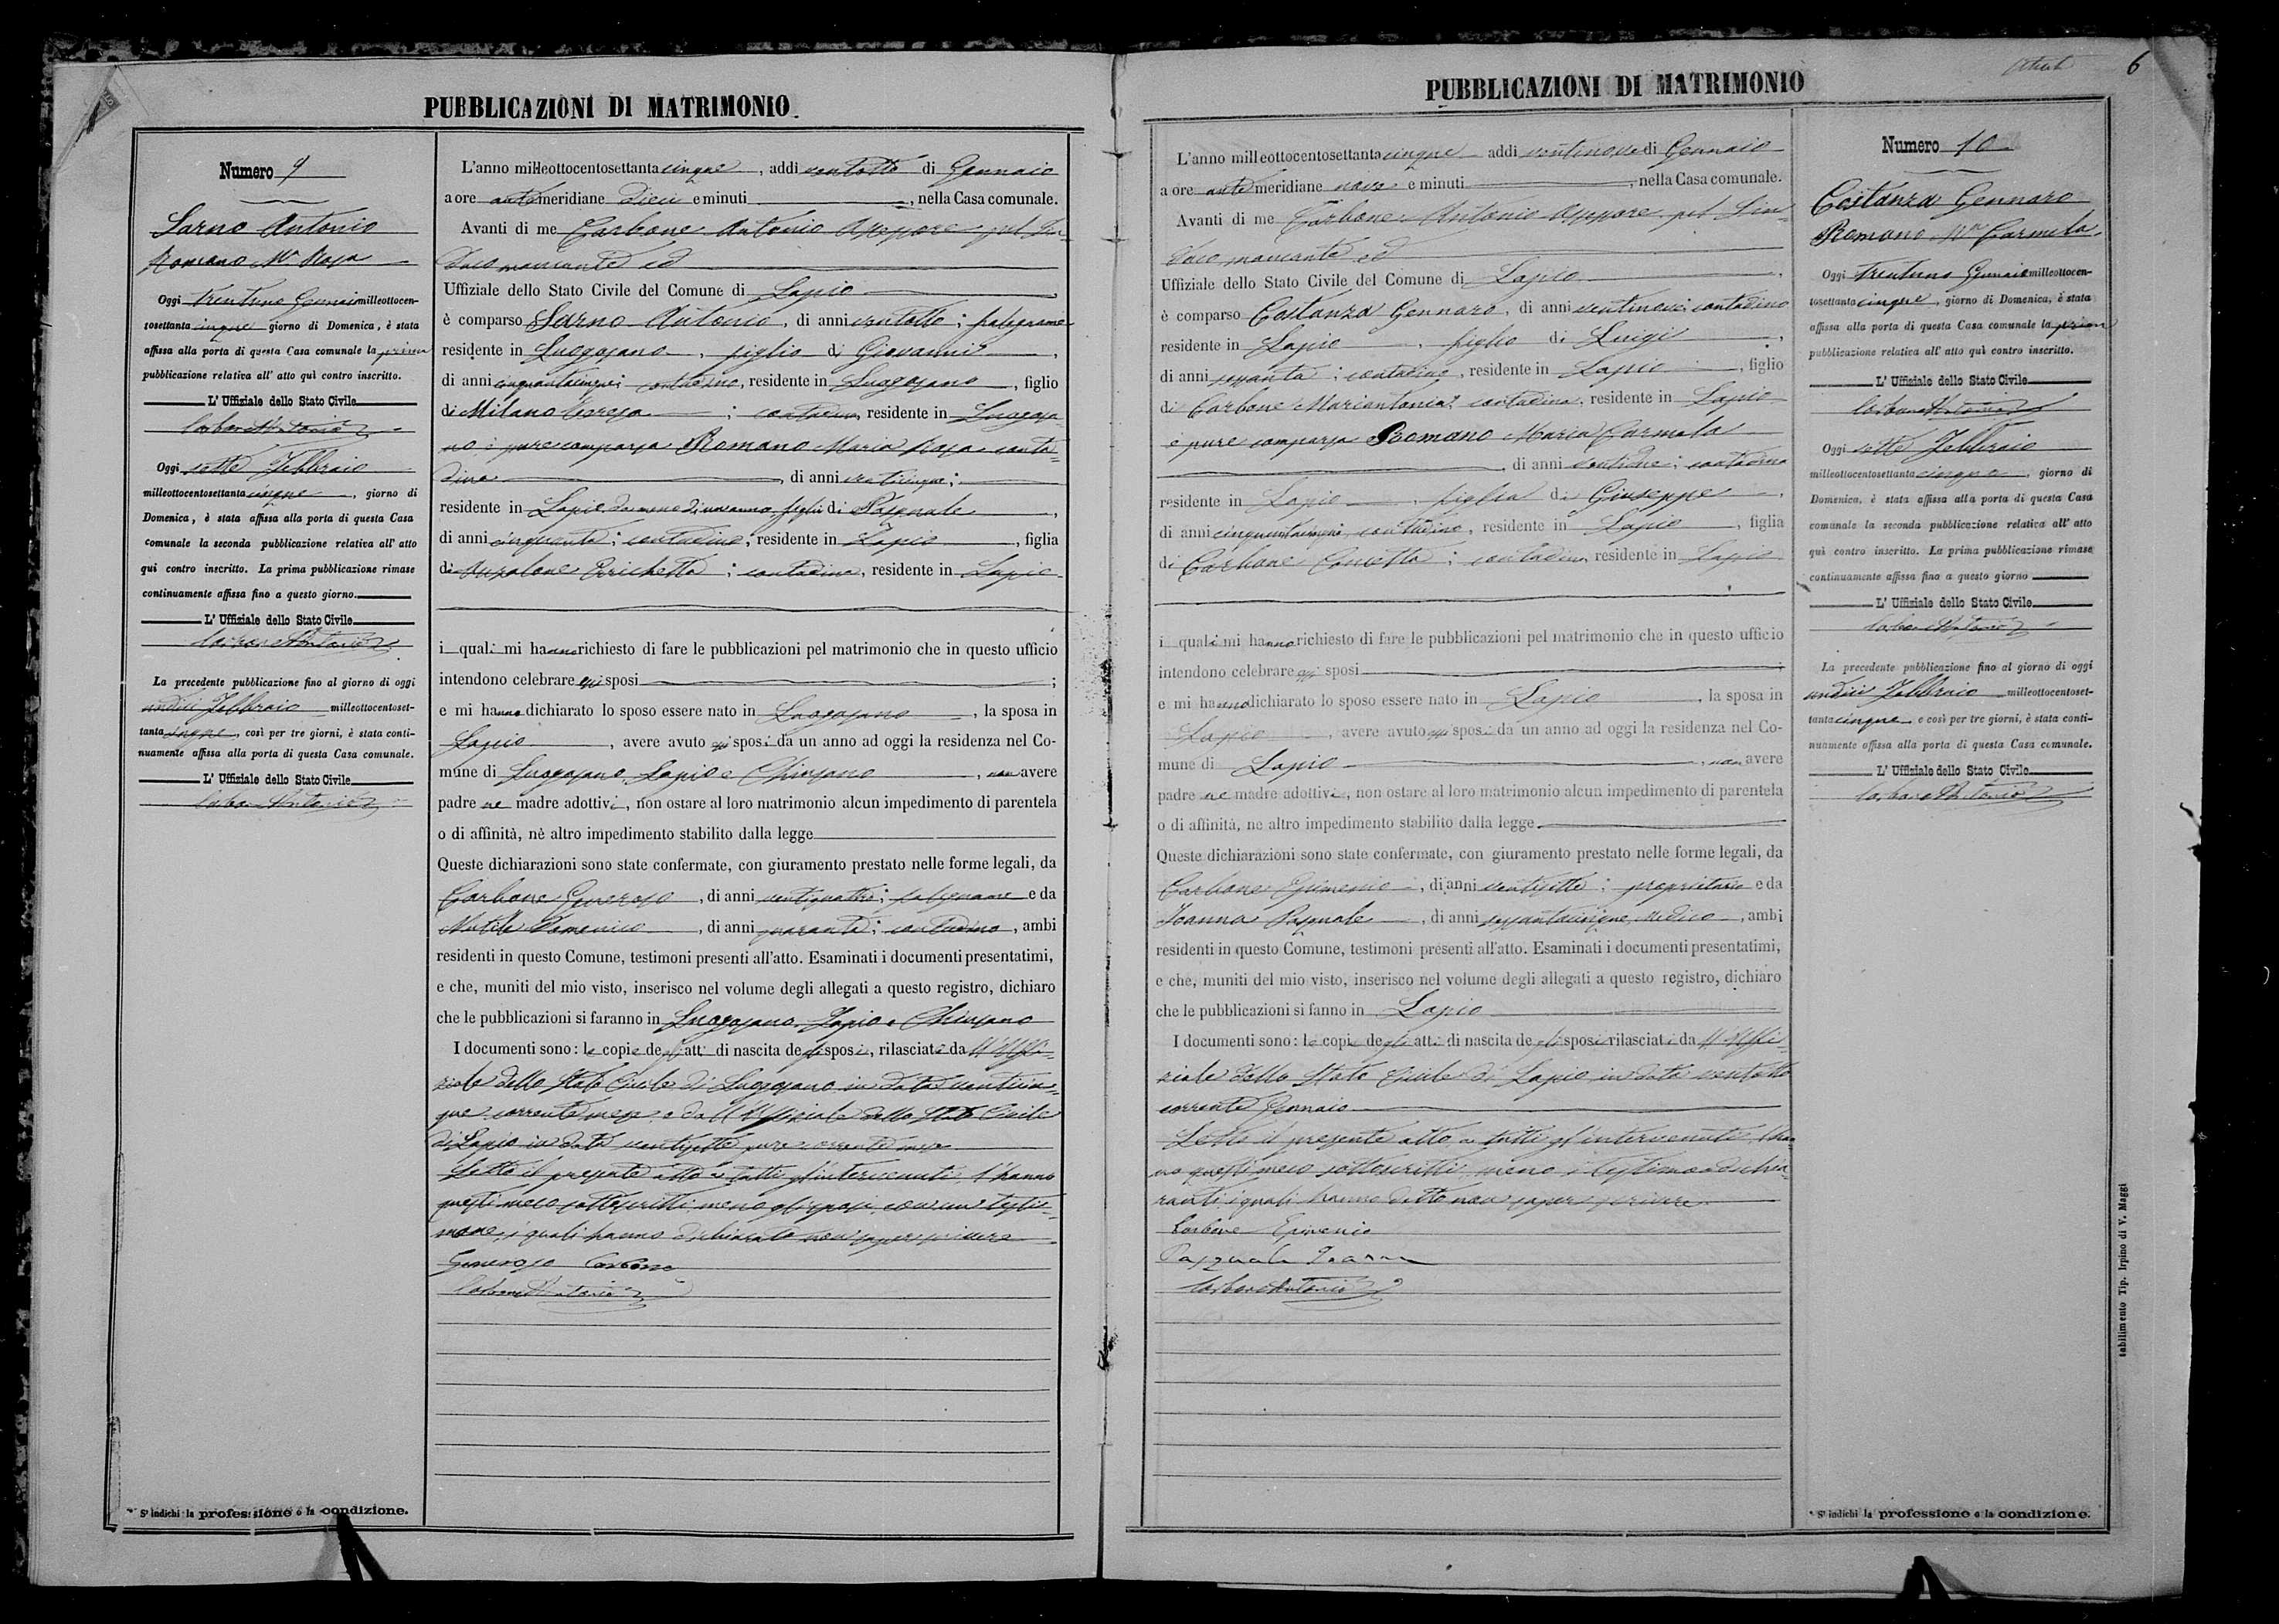 PUBBLICAZIONI DI MATRIMONIO.
Numero 9
Sarno Antonio
Romano Ma Rosa
Oggi trentuno Gennaio milleottocen-
tosettanta cinque giorno di Domenica, è stata
affissa alla porta di questa Casa comunale la prima
pubblicazione relativa all' atto quì contro inscritto.
L' Uffiziale dello Stato Civile
Carbone Antonio
Oggi sette Febbraio
milleottocentosettanta cinque, giorno di
Domenica, è stata affissa alla porta di questa Casa
comunale la seconda pubblicazione relativa all' atto
quì contro inscritto. La prima pubblicazione rimase
continuamente affissa fino a questo giorno.
L' Uffiziale dello Stato Civile
Carbone Antonio
La precedente pubblicazione fino al giorno di oggi
undici Febbraio milleottocentoset-
tanta cinque, così per tre giorni, è stata conti-
nuamente affissa alla porta di questa Casa comunale.
L' Uffiziale dello Stato Civile
Carbone Antonio
* Si indichi la professione o la condizione.
L'anno milleottocentosettanta cinque, addi ventotto di Gennaio
a ore antemeridiane dieci e minuti, nella Casa comunale.
Avanti di me Carbone Antonio Assessore pel Sin-
daco mancante ed
Uffiziale dello Stato Civile del Comune di Lapio
è comparso Sarno Antonio, di anni ventotto; falegname
residente in Luogosano, figlio di Giovanni,
di anni cinquantacinque; contadino, residente in Luogosano, figlio
di Milano Teresa; contadina, residente in Luogosa-
no è pure comparsa Romano Maria Rosa conta-
dina, di anni venticinque;
residente in Lapio da meno di un anno figlia di Pasquale,
di anni cinquanta; contadino, residente in Lapio, figlia
di Errichetta; contadina, residente in Lapio
i quali mi hanno richiesto di fare le pubblicazioni pel matrimonio che in questo ufficio
intendono celebrare essi sposi;
e mi hanno dichiarato lo sposo essere nato in Luogosano, la sposa in
Lapio, avere avuto essi sposi da un anno ad oggi la residenza nel Co-
mune di Luogosano, Lapio e Chiusano, non avere
padre ne madre adottivi, non ostare al loro matrimonio alcun impedimento di parentela
o di affinità, nè altro impedimento stabilito dalla legge
Queste dichiarazioni sono state confermate, con giuramento prestato nelle forme legali, da
Carbone Generoso, di anni ventiquattro; falegname e da
Domenico, di anni quaranta; contadino, ambi
residenti in questo Comune, testimoni presenti all'atto. Esaminati i documenti presentatimi,
e che, muniti del mio visto, inserisco nel volume degli allegati a questo registro, dichiaro
che le pubblicazioni si faranno in Luogosano, Lapio e Chiusano
I documenti sono: le copie degli atti di nascita degli sposi, rilasciate da ll'Uffi-
ziale dello Stato Civile di Luogosano in data venticin-
que corrente mese e dall'Uffiziale dello Stato Civile
di Lapio in data ventisette pure corrente mese
Letto il presente atto a tutti gl'intervenuti, l'hanno
questi meco sottoscritti meno gli sposi, con un testi-
mone, i quali hanno dichiarato non saper scrivere
Generoso Carbone
Carbone Antonio
PUBBLICAZIONI DI MATRIMONIO
6
L'anno milleottocentosettanta cinque addi ventinove di Gennaio
a ore antemeridiane nove e minuti, nella Casa comunale.
Avanti di me Carbone Antonio Assessore pel Sin-
daco mancante ed
Uffiziale dello Stato Civile del Comune di Lapio
è comparso Costanza Gennaro, di anni ventinove; contadino
residente in Lapio, figlio di Luigi,
di anni sessanta; contadino, residente in Lapio, figlio
di Carbone Mariantonia; contadina, residente in Lapio
è pure comparsa Romano Maria Carmela
, di anni ventidue; contadina
residente in Lapio, figlia di Giuseppe,
di anni cinquantacinque, contadino, residente in Lapio, figlia
di Carbone Concetta; contadina, residente in Lapio
i quali mi hanno richiesto di fare le pubblicazioni pel matrimonio che in questo ufficio
intendono celebrare essi sposi;
e mi hanno dichiarato lo sposo essere nato in Lapio, la sposa in
Lapio, avere avuto essi sposi da un anno ad oggi la residenza nel Co-
mune di Lapio, non avere
padre ne madre adottivi, non ostare al loro matrimonio alcun impedimento di parentela
o di affinità, nè altro impedimento stabilito dalla legge
Queste dichiarazioni sono state confermate, con giuramento prestato nelle forme legali, da
Carbone Epimenio, di anni ventisette; proprietario e da
Ioanna Pasquale, di anni sessantacinque, Medico, ambi
residenti in questo Comune, testimoni presenti all'atto. Esaminati i documenti presentatimi,
e che, muniti del mio visto, inserisco nel volume degli allegati a questo registro, dichiaro
che le pubblicazioni si fanno in Lapio
I documenti sono: le copie degli atti di nascita degli sposi rilasciati da ll'Uffi-
ziale dello Stato Civile di Lapio in data ventotto
corrente Gennaio
Letto il presente atto a tutti gl'intervenuti l'han-
no questi meco sottoscritti, meno i dichia-
ranti i quali hanno detto non sapere scrivere
Carbone Epimenio
Pasquale Ioanna
Carbone Antonio
Numero 10
Costanza Gennaro
Romano Ma Carmela
Oggi trentuno Gennaio milleottocen-
tosettanta cinque, giorno di Domenica, è stata
affissa alla porta di questa Casa comunale la prima
pubblicazione relativa all' atto quì contro inscritto.
L' Uffiziale dello Stato Civile
Carbone Antonio
Oggi sette Febbraio
milleottocentosettanta cinque, giorno di
Domenica, è stata affissa alla porta di questa Casa
comunale la seconda pubblicazione relativa all' atto
quì contro inscritto. La prima pubblicazione rimase
continuamente affissa fino a questo giorno
L' Uffiziale dello Stato Civile
Carbone Antonio
La precedente pubblicazione fino al giorno di oggi
undici Febbraio milleottocentoset-
tanta cinque e così per tre giorni, è stata conti-
nuamente affissa alla porta di questa Casa comunale.
L' Uffiziale dello Stato Civile
Carbone Antonio
* Si indichi la professione o la condizione.
tabilimento Tip. Irpino di V. Maggi